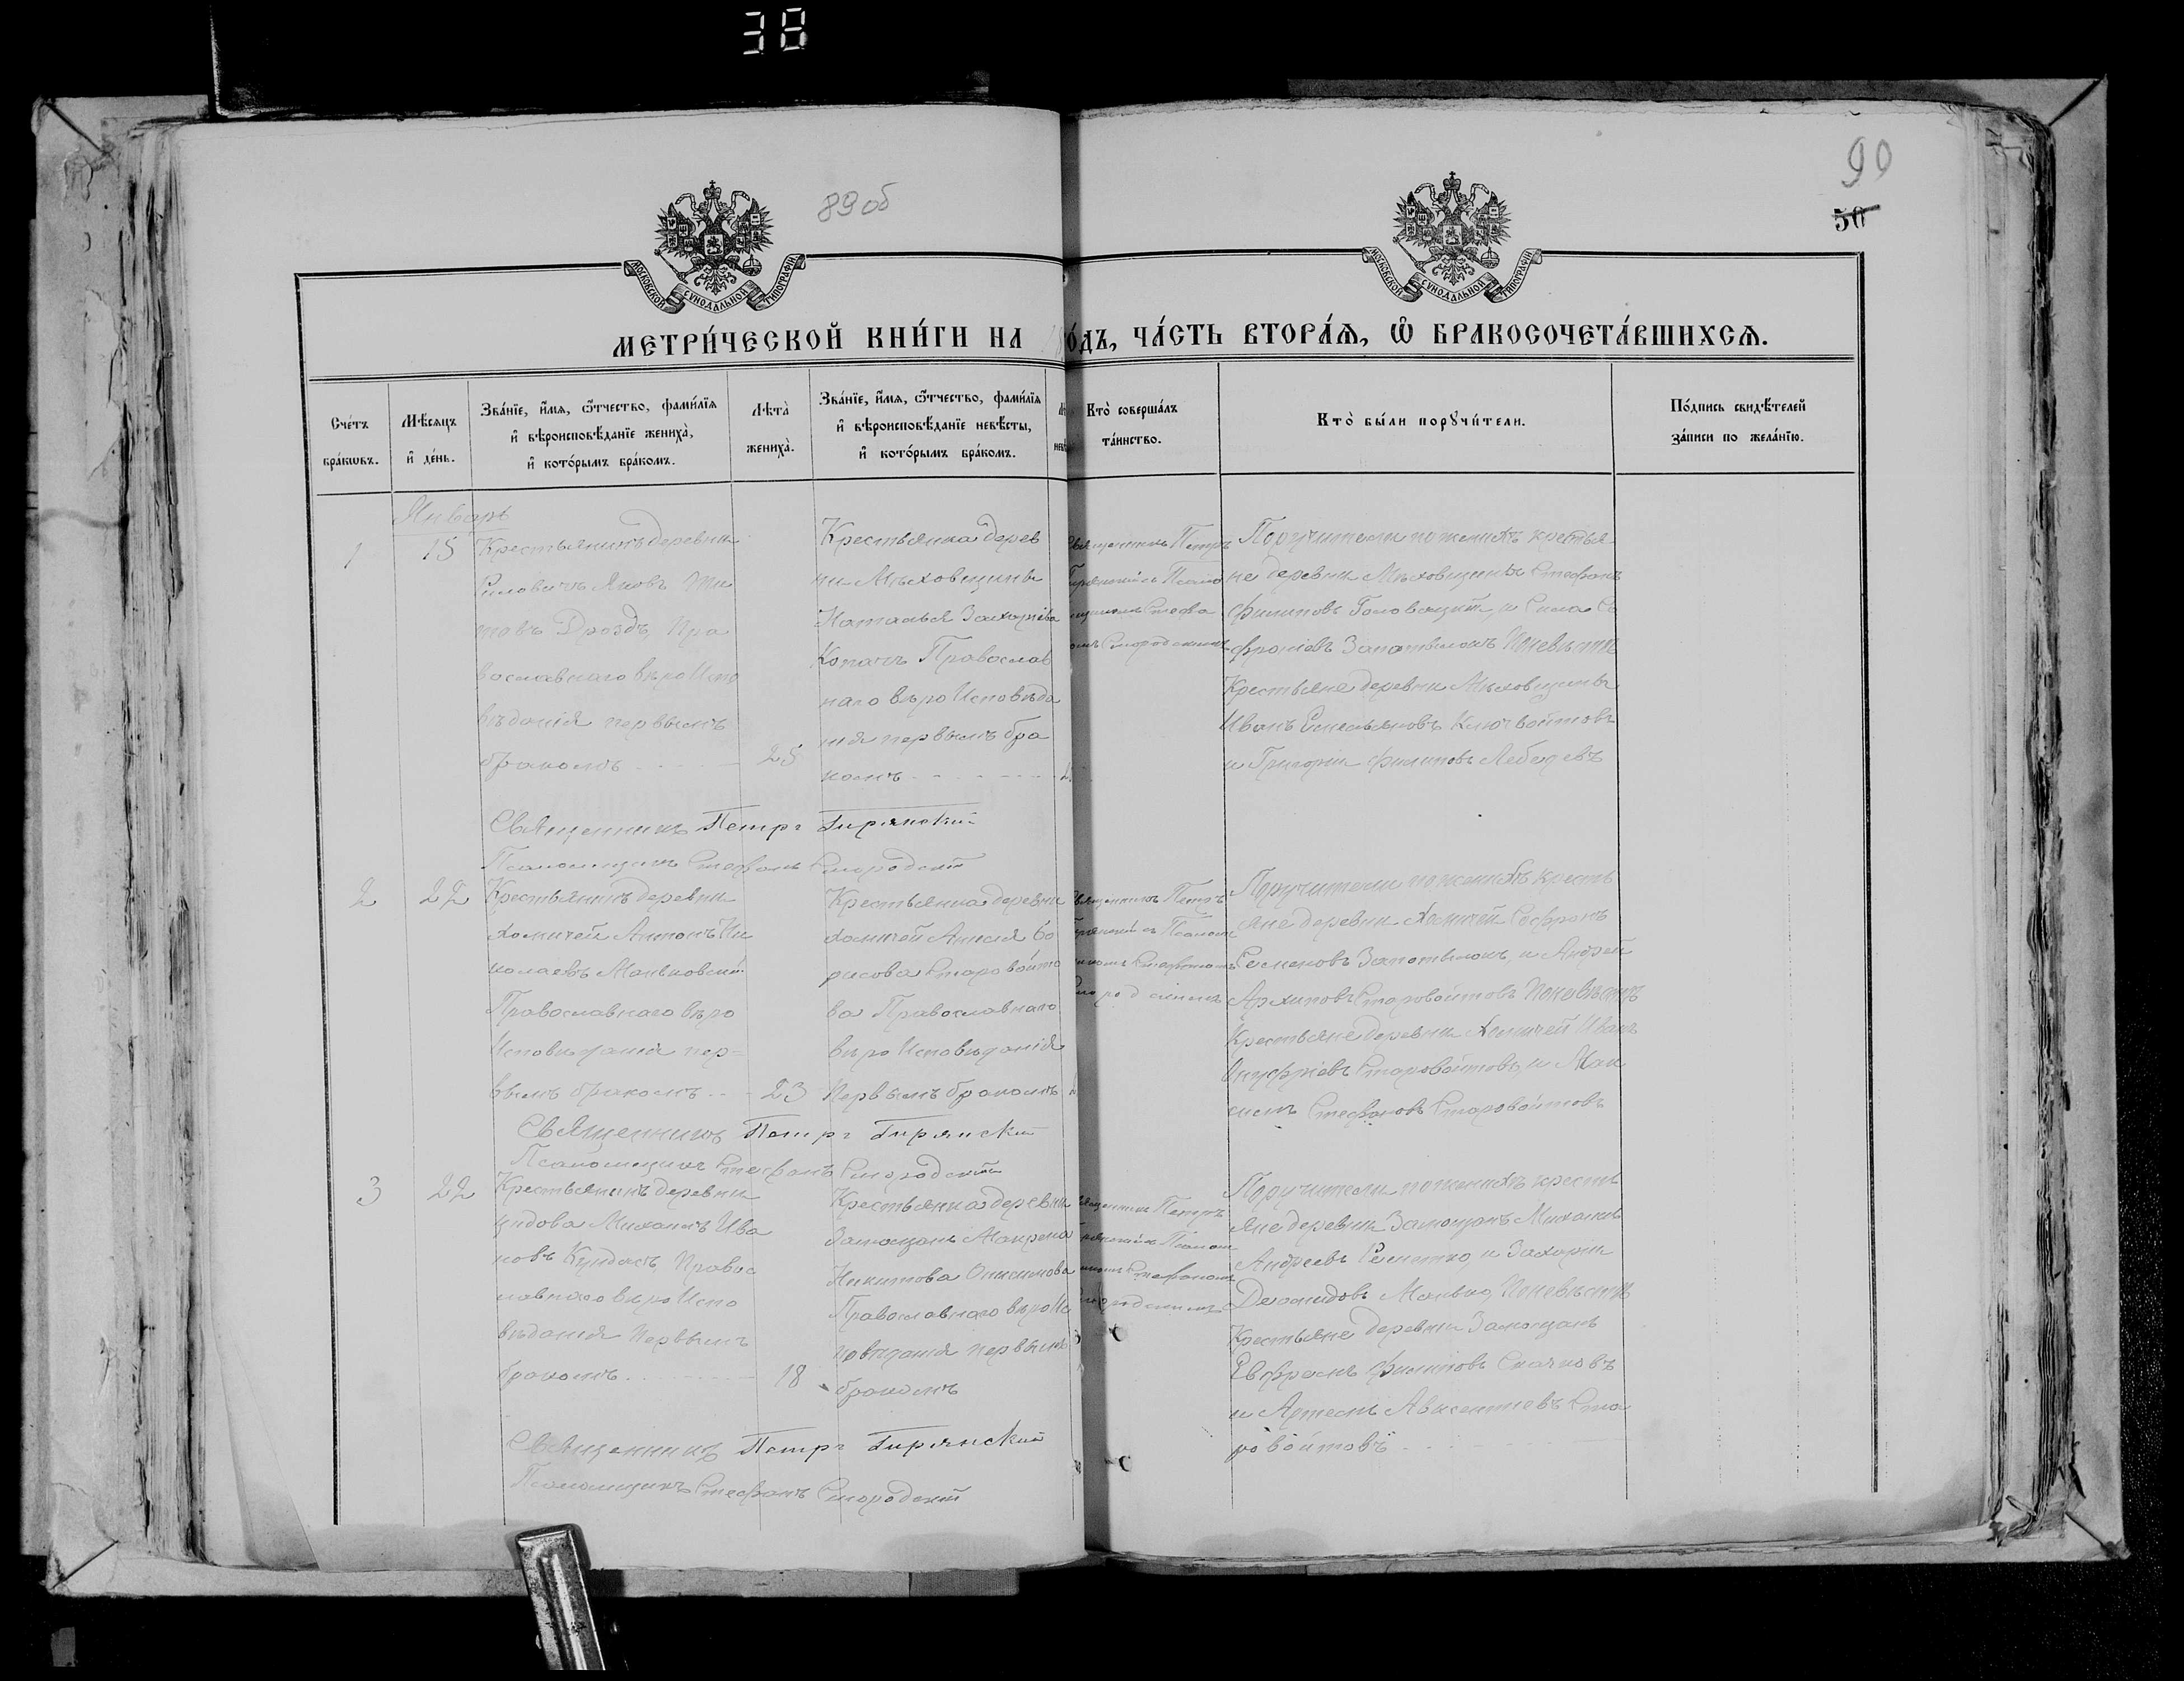 38
89 об
90
50
МОСКОВСКОЙ СѴНОДАЛЬНОЙ ТИПОГРАФІИ
МОСКОВСКОЙ СѴНОДАЛЬНОЙ ТИПОГРАФІИ
МЕТРИ́ЧЕСКОЙ КНИ́ГИ НА
О́ДЪ, ЧА́СТЬ ВТОРА́Ѧ, Ѽ БРАКОСОЧЕТА́ВШИХСѦ.
Сче́тъ бра́кѡвъ.
Мѣ́сѧцъ и҆ де́нь.
Зва́нїе, и҆́мѧ, ѻ҆́тчество, фами́лїѧ
и҆ вѣроисповѣ́данїе жениха̀,
и҆ кото́рымъ бра́комъ.
Лѣта̀ жениха̀.
Зва́нїе, и҆́мѧ, ѻ҆́тчество, фами́лїѧ
и҆ вѣроисповѣ́данїе невѣ́сты,
и҆ кото́рымъ бра́комъ.
Кто̀ соверша́лъ
та́инство.
Кто̀ бы́ли порꙋчи́тели.
По́дпись свидѣ́телей
за́писи по жела́нїю.
Январь
1
15
Крестьянинъ деревни
Яковъ Ти
товъ Дроздъ, Пра
вославнаго вѣроИспо
вѣданія первымъ
бракомъ
25
Крестьянка дерев
ни Мѣховщины
Наталья Захоріева
Копачъ Православ
наго вѣроИсповѣда
нія первымъ бра
комъ
Священникъ Петръ
Гирянскій съ Псало
мщикомъ Стефа
номъ
Поручители по женихѣ крестья
не деревни Мѣховщины Стефанъ
Филиповъ Головацкій, и Сила Со
фроніевъ Запотылокъ По невѣстѣ
Крестьяне деревни Мѣховщины
Иванъ Емельяновъ Ключвойтовъ
и Григорій Филиповъ Лебедевъ
Священникъ Петръ Гирянскій
Псаломщикъ Стефанъ
2
22
Крестьянинъ деревни
Хомичей Антонъ Ни
колаевъ Маньковскій
Православнаго вѣро
Исповѣданія пер=
вымъ бракомъ
23
Крестьянка деревни
Хомичей Анна Бо
рисова Старовойто
ва Православнаго
вѣроИсповѣданія
Первымъ бракомъ
Священникъ Петръ
Гирянскій съ Псалом
щикомъ Стефаномъ
Поручители по женихѣ кресть
яне деревни Хомичей Софронъ
Семеновъ Запотылокъ, и Андрей
Архиповъ Старовойтовъ По невѣстѣ
Крестьяне деревни Хомичей Иванъ
Онуфріевъ Старовойтовъ, и Мак
симъ Стефановъ Старовойтовъ
Священникъ Петръ Гирянскій
Псаломщикъ Стефанъ
3
22
Крестьянинъ деревни
Михаилъ Ива
новъ Православ
наго вѣроИспо
вѣданія Первымъ
бракомъ
18
Крестьянка деревни
Замощанъ Макрена
Никитова Онисимова
Православнаго вѣроИс
повѣданія первымъ
бракомъ
Священникъ Петръ
Гирянскій съ Псалом
щикомъ Стефаномъ
Поручители по женихѣ кресть
яне деревни Замощанъ Михаилъ
Андреевъ и Захорій
Демидовъ Манько, По невѣстѣ
Крестьяне деревни Замощанъ
Евфремъ Филиповъ Скачковъ
и Артемъ Авксентіевъ Ста
ровойтовъ
Священникъ Петръ Гирянскій
Псаломщикъ Стефанъ